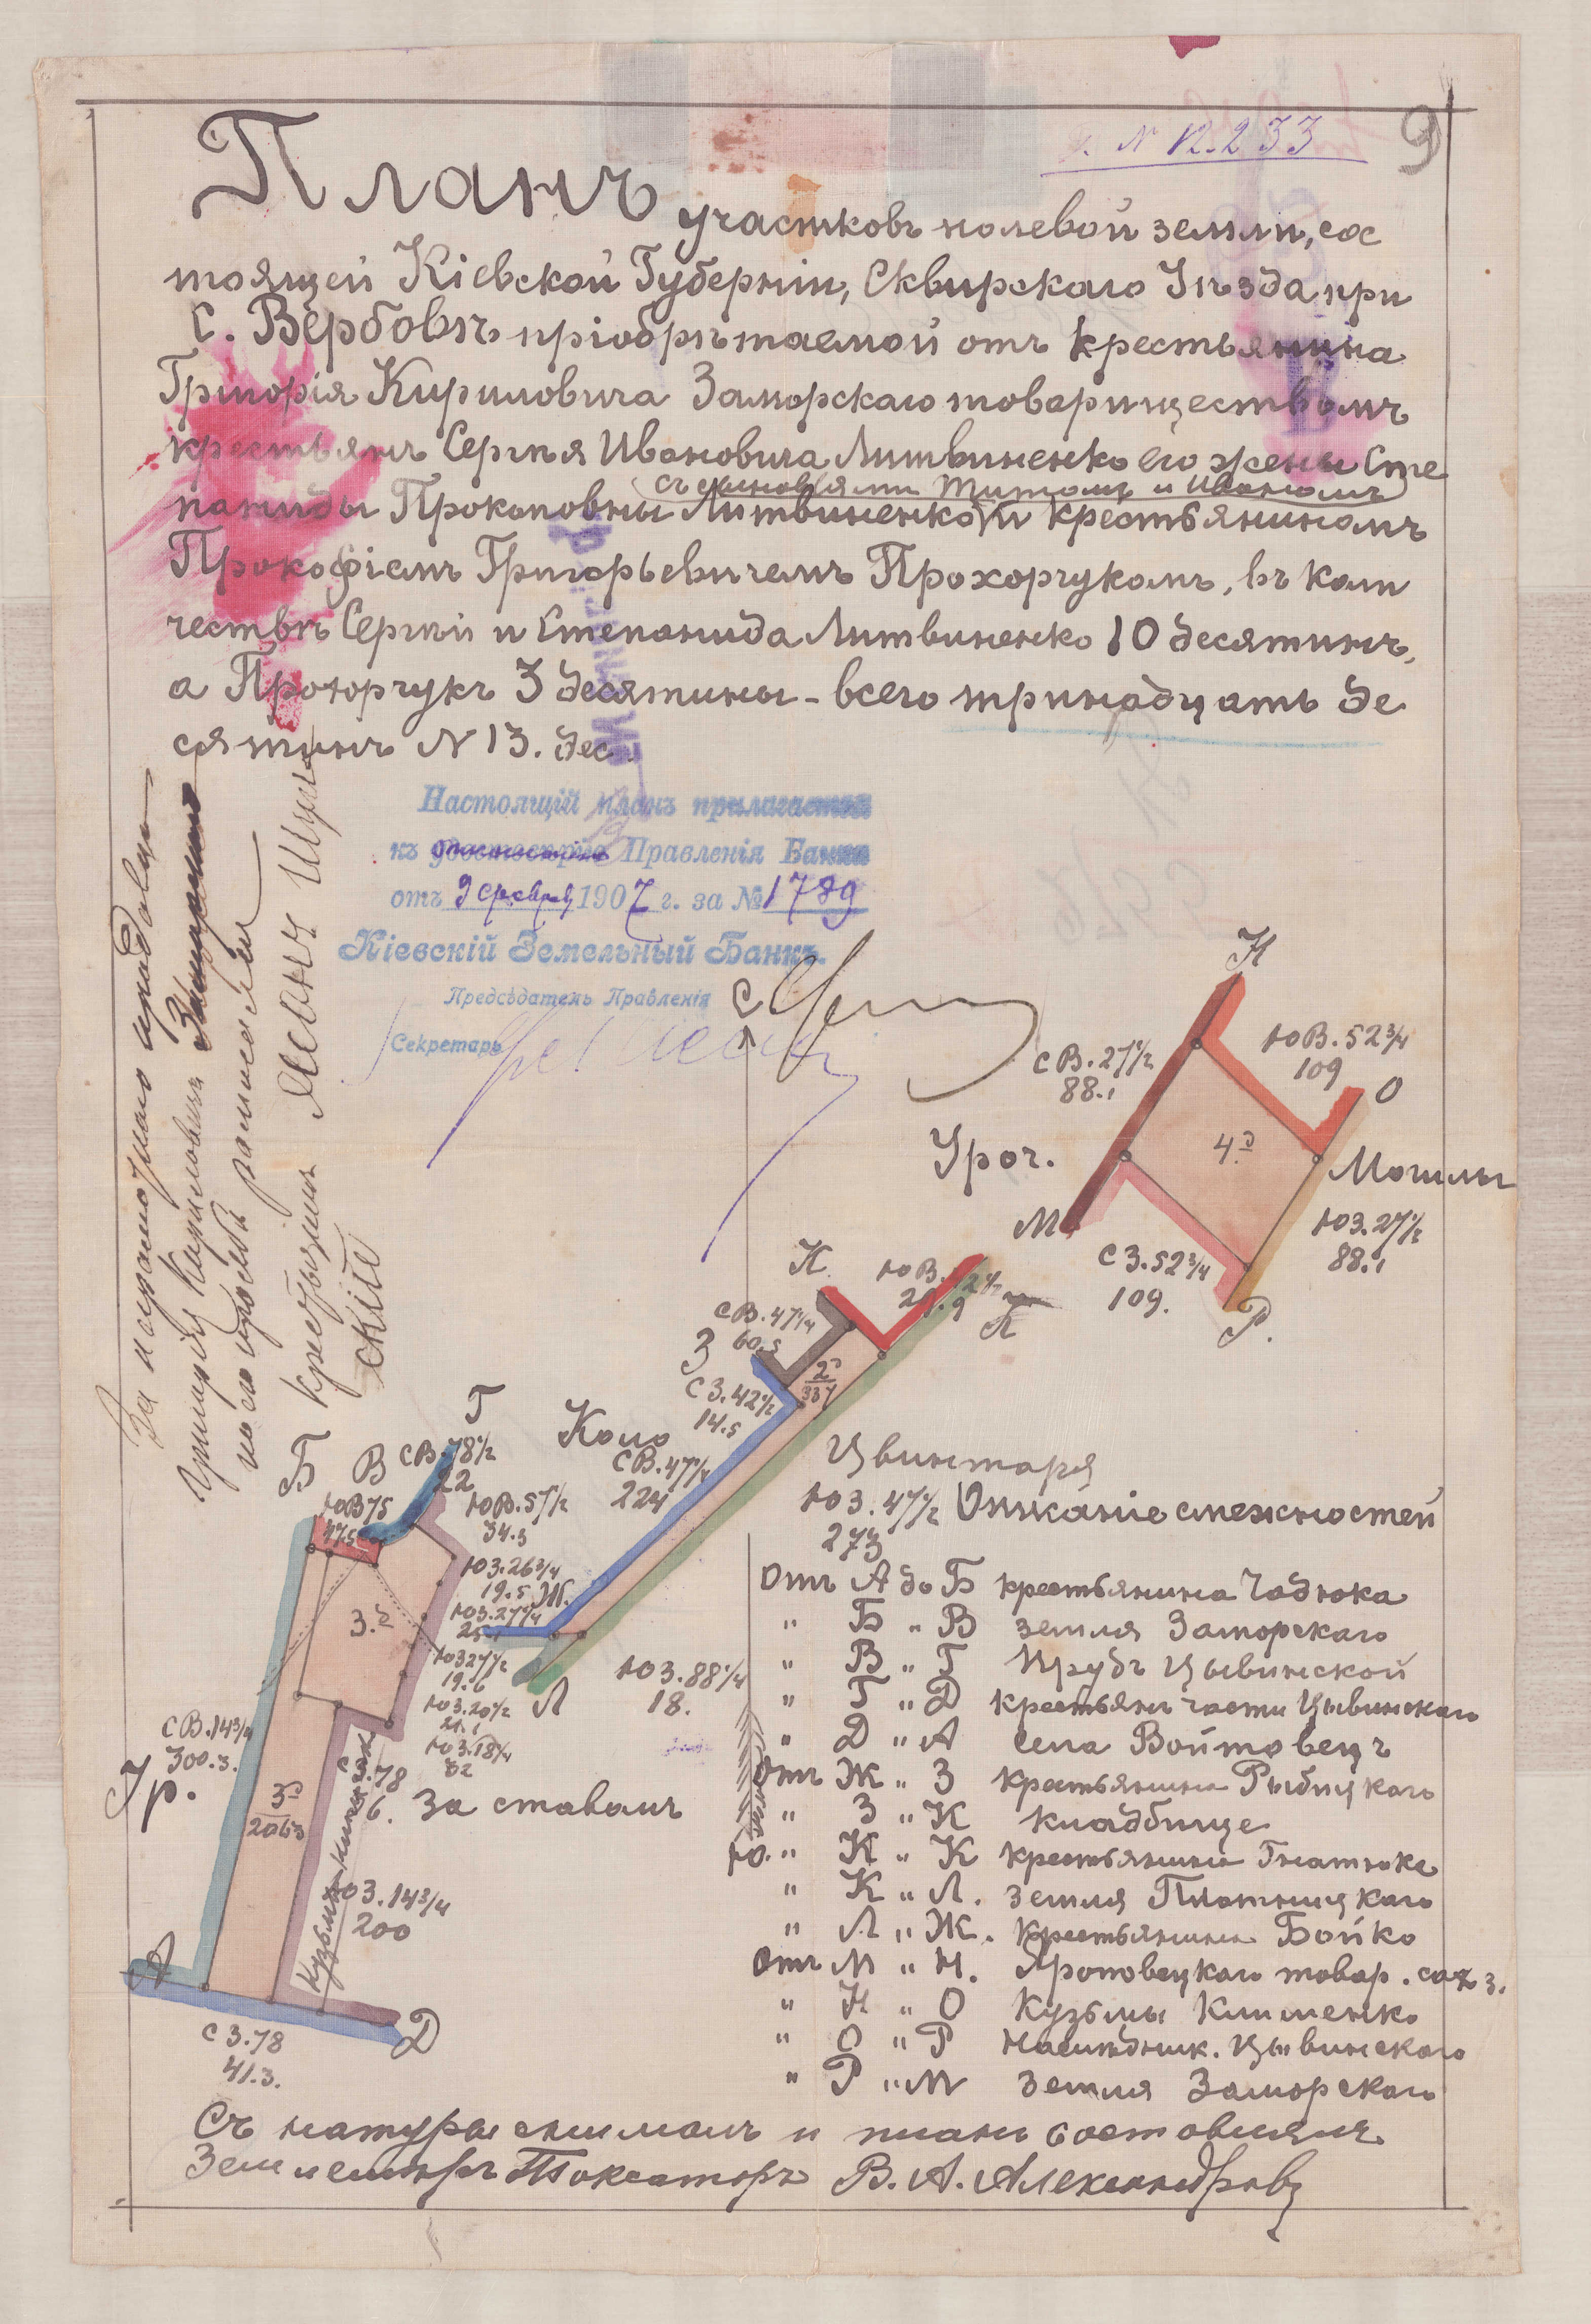 № 12.233
9
Планъ участковъ полевой земли, сос
тоящей Кіевской Губерніи, Сквирскаго Уѣзда при
с. Вербовѣ пріобрѣтаемой отъ крестьянина
Григорія Кириловича Заморскаго товариществомъ
крестьянъ Сергѣя Ивановича Литвиненко его жены Сте
съ сыновьями Титомъ и Иваномъ
паниды Прокоповны Литвиненко и крестьяниномъ
Прокофіемъ Григорьевичемъ Прохорчукомъ, въ коли
чествѣ Сергѣй и Степанида Литвиненко 10 десятинъ,
а Прохорчукъ 3 десятины - всего тринадцать де
сятинъ N 13. дес.
Настоящій планъ прилагается
къ Правленія Банка
отъ 9 февр 1907 г. за № 1789
Кіевскій Земельный Банкъ.
Предсѣдатель Правленія
Секретарь
За неграмотнаго продавца
Григорія Кириловича Заморского
по его просьбѣ росписался
крестьянинъ
С
Н
СВ.27½
88.1
ЮВ.52¾
109
О
Уроч.
4.д
Могилы
М
СЗ.52¾
109.
ЮЗ.27½
88.1
Р.
К
ЮВ.42½
21.9
К
СВ.47¼
60.5
З
2д
337
СЗ.42½
14.5
Коло
Цвинтаря
СВ.47¼
224
ЮЗ.47¼
273
Г
Б
В
СВ.78½
22
ЮВ75
47.5
ЮВ.57½
34.3
ЮЗ.26¾
19.5
Ж.
ЮЗ.27¼
3.д
ЮЗ27½
19.6
Л
ЮЗ.88¼
18.
ЮЗ.20½
21.1
ЮЗ.18¼
32
СВ.14¾
300.3.
Ур.
СЗ.78
6.
За ставомъ
3д
2063
Кузьма Клименко
ЮЗ.14¾
200
А
Д
СЗ.78
41.3.
Ю.
Описаніе смежностей
Отъ А до Б крестьянина Чадюка
" Б " В земля Заморскаго
" В " Г Прудъ Цывинской
" Г " Д крестьянъ части Цывинскаго
" Д " А села Войтовецъ
Отъ Ж " З крестьянина Рыбицкаго
" З " К кладбище
" К " К крестьянина Гнатюка
" К " Л. земля Плотницкаго
" Л " Ж. крестьянина Бойко
Отъ М " Н. Яроповецкаго товар. сах з.
" Н " О Кузьмы Клименко
" О " Р Наслѣдник. Цывинскаго
" Р " М Земля Заморскаго
Съ натуры снималъ и планъ составлялъ
Землемѣръ Таксаторъ В. А. Александровъ